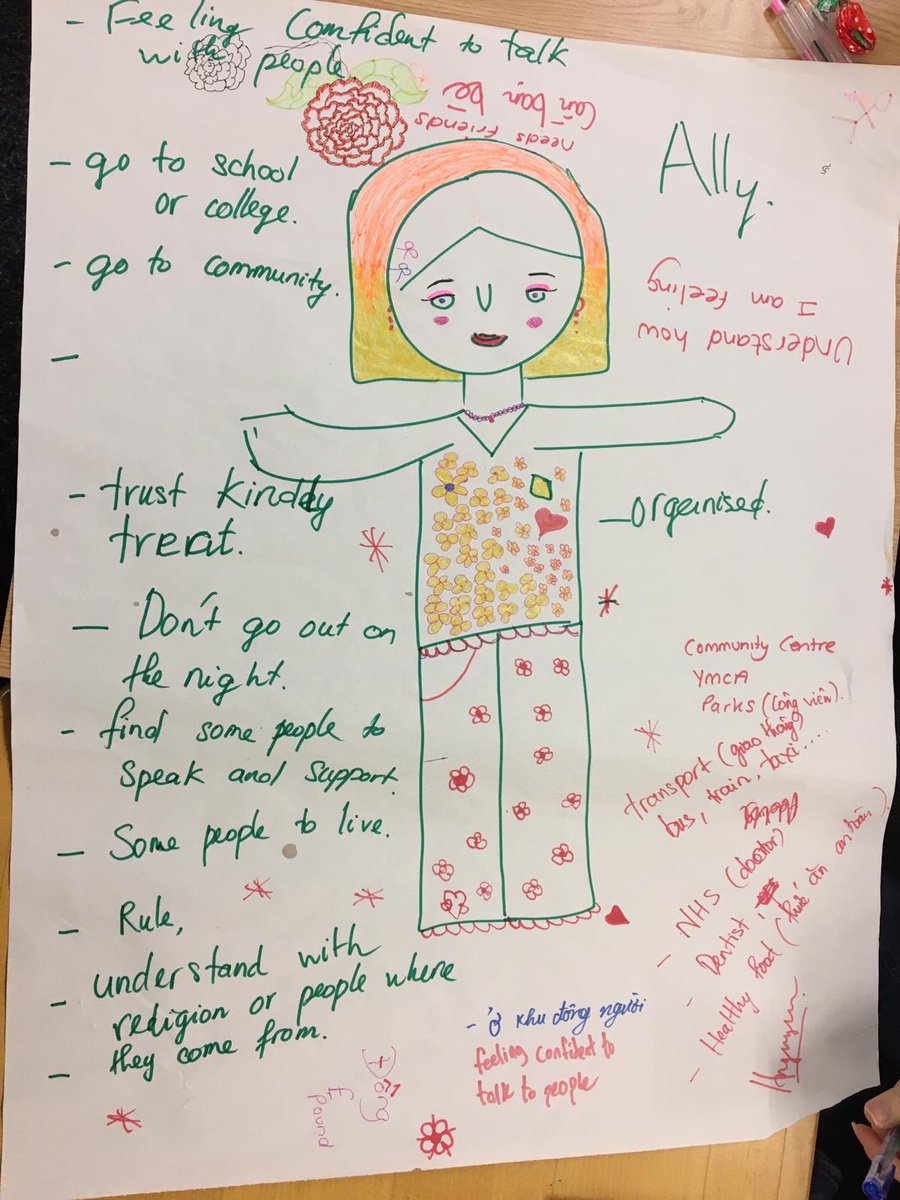 - Feeling Confident to talk
with people
needs friends
Cần bạn bè
Ally.
- go to school
or college.
- go to community.
Understand how
I am feeling
-
- trust kindly
treat.
- organised.
- Don't go out on
the night.
- find some people to
speak and support.
- Some people to live.
- Rule,
- understand with
redigion or people where
- they come from.
Community Centre
YMCA
Parks (Công viên).
transport (giao thông)
bus, train, taxi....
- NHS (doctor)
- Dentist,
- Healthy food (thức ăn an toàn).
- ở khu đông người
feeling confident to
talk to people
Đồng
£
pound